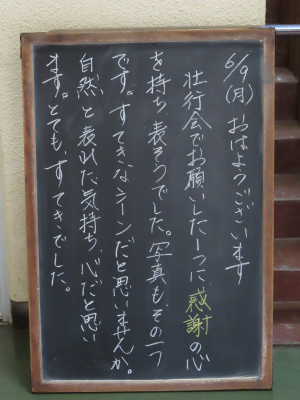 6/9(月) おはようございます
壮行会でお願いした一つに、感謝の心
を持ち 表そうでした。写真も、その一つ
です。すてきなシーンだと思いませんか。
自然と表れた気持ち、心だと思い
ます。とても、すてきでした。